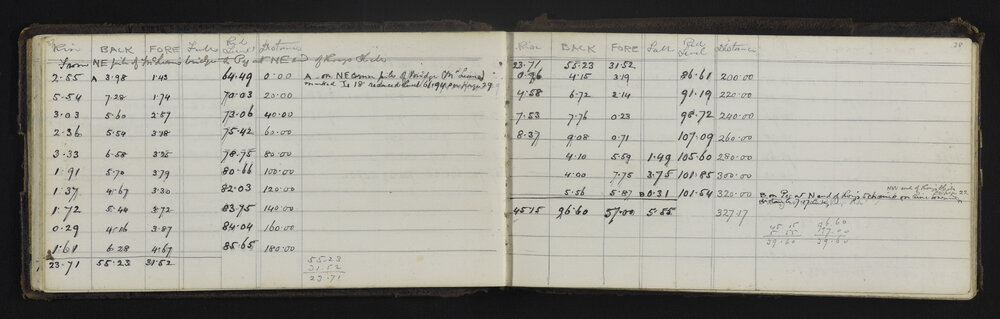 Rise BACK FORE Falls Red Level Distance
From NE pile of McLeans bridge to Peg at NE end of Kings Slide
2.55 A 3.98 1.43 64.49 0.00 A on NE corner pile of bridge
marked Is 18 reduced level 61.94
5.54 7.28 1.74 70.03 20.00
3.03 5.60 2.57 73.06 40.00
2.36 5.54 3.18 75.42 60.00
3.33 6.58 3.25 78.75 80.00
1.91 5.70 3.79 80.66 100.00
1.37 4.67 3.30 82.03 120.00
1.72 5.44 3.72 83.75 140.00
0.29 4.16 3.87 84.04 160.00
1.61 6.28 4.67 85.65 180.00
23.71 55.23 31.52
55.23
31.52
23.71
28
Rise BACK FORE Falls Red Level Distance
23.71 55.23 31.52
0.96 4.15 3.19 86.61 200.00
4.58 6.72 2.14 91.19 220.00
7.53 7.76 0.23 98.72 240.00
8.37 9.08 0.71 107.09 260.00
4.10 5.59 1.49 105.60 280.00
4.00 7.75 3.75 101.85 300.00
5.56 5.87 B 0.31 101.54 320.00 B on Peg at N end of Kings
NW end of Kings Slide
22
45.15 96.60 57.00 5.55 327.17
45 15 96.60
5 55 57.00
39.60 39.60